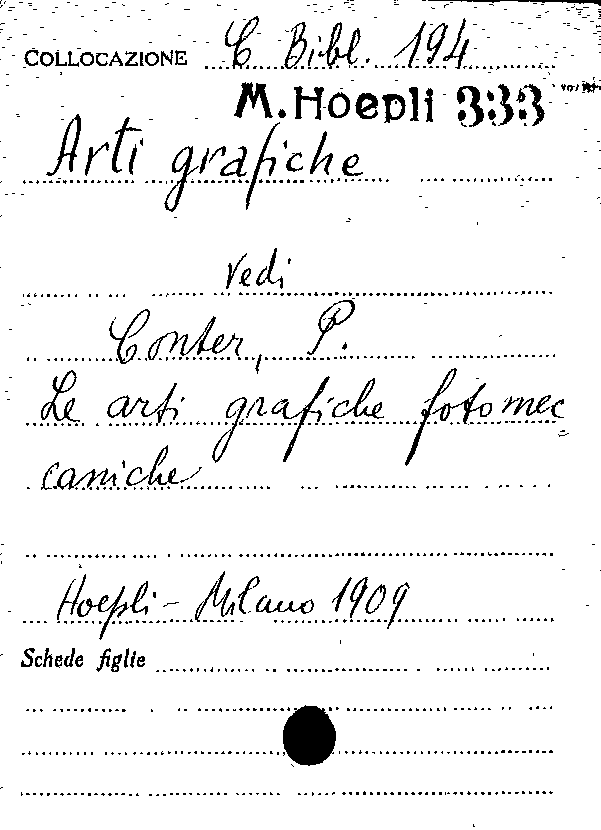 COLLOCAZIONE C Bibl. 194
M. Hoepli 333
Arti grafiche
vedi
Conter, P.
Le arti grafiche fotomec=
caniche
Hoepli - Milano 1909
Schede figlie